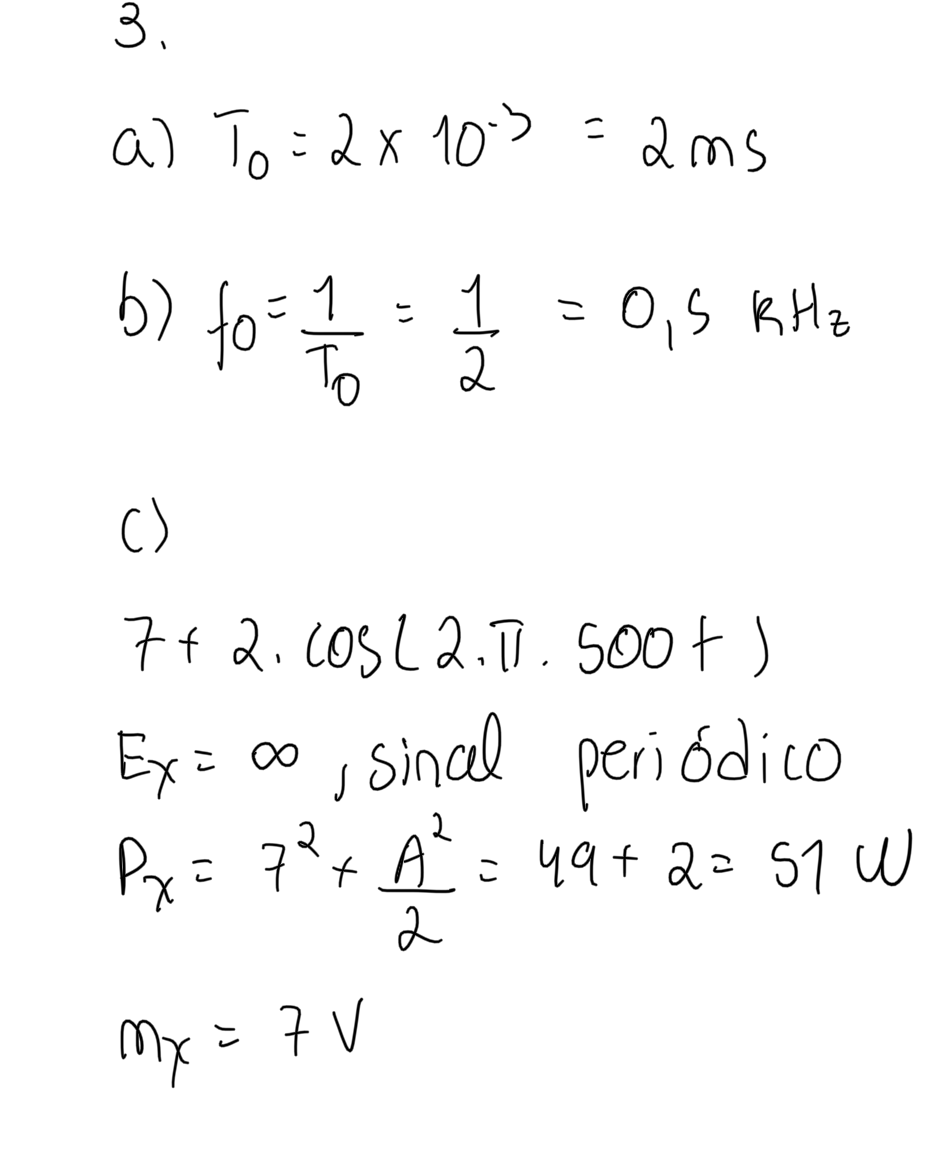 3.
a) T₀ = 2 x 10⁻³ = 2 ms
b) f₀ = 1/T₀ = 1/2 = 0,5 kHz
c)
7 + 2. cos(2.π. 500t)
Eₓ = ∞, sinal periódico
Pₓ = 7² + A²/2 = 49 + 2 = 51 W
mₓ = 7 V